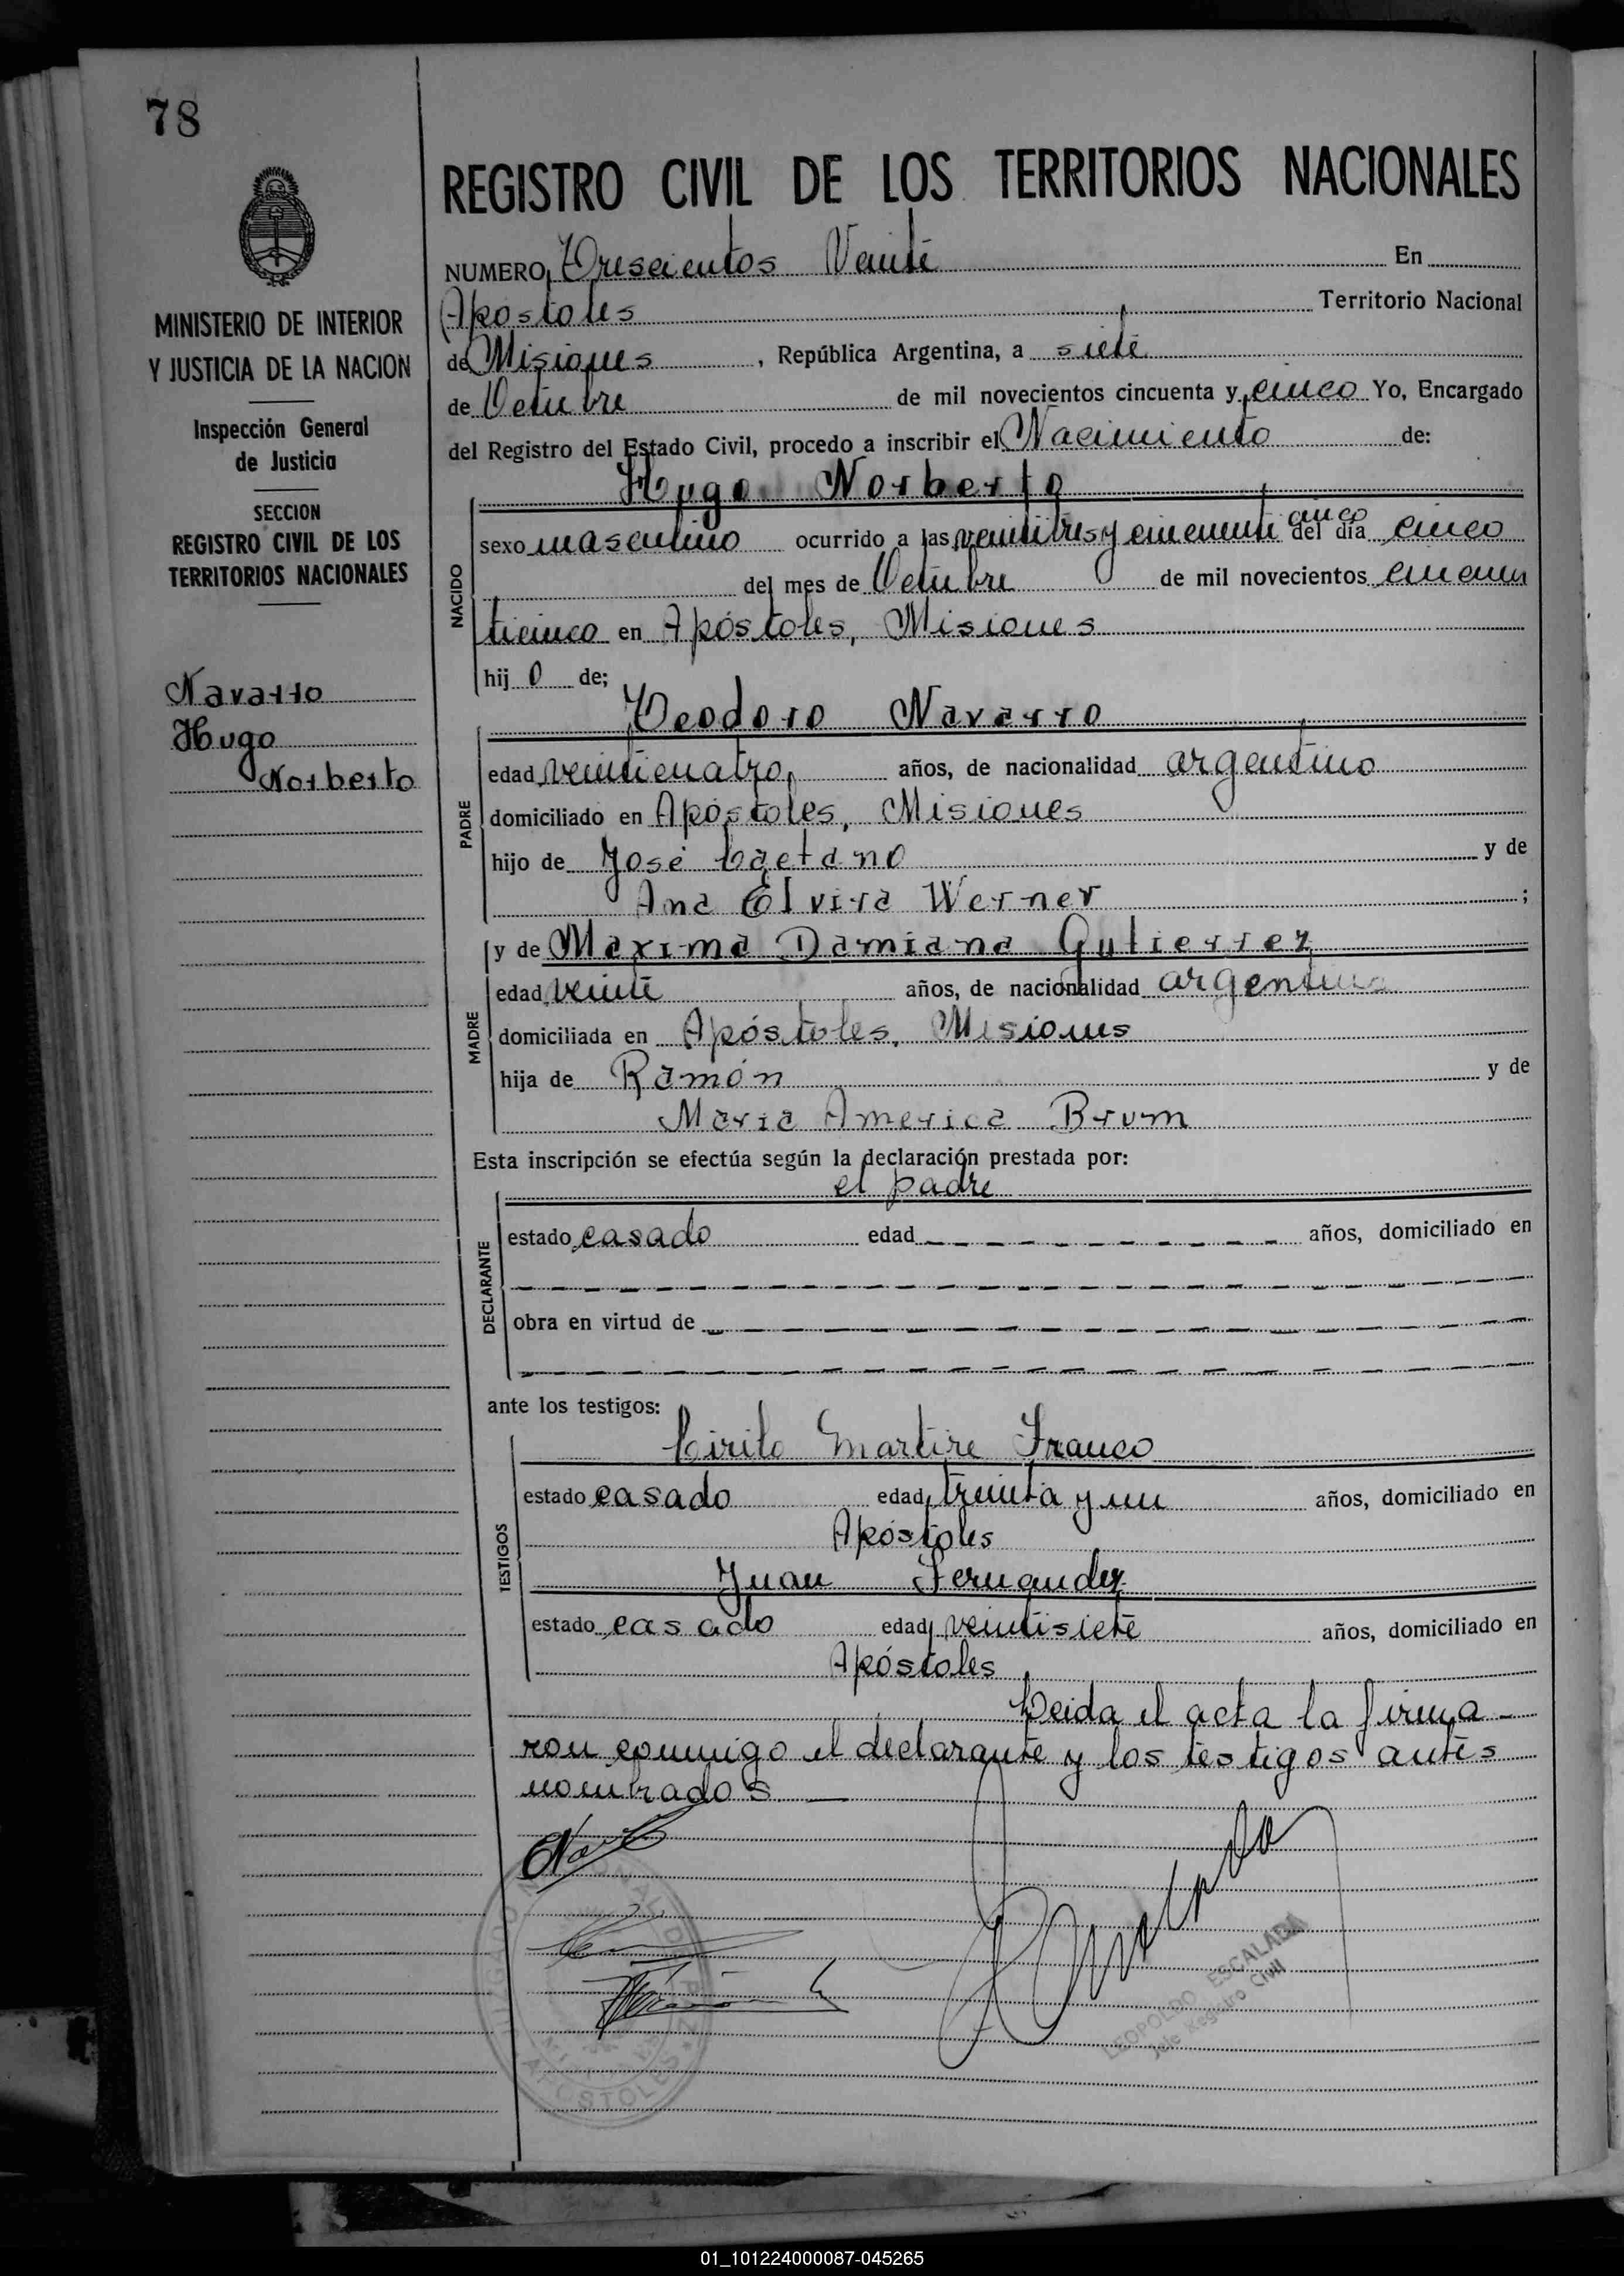 78
REGISTRO CIVIL DE LOS TERRITORIOS NACIONALES
MINISTERIO DE INTERIOR
Y JUSTICIA DE LA NACION
Inspección General
de Justicia
SECCION
REGISTRO CIVIL DE LOS
TERRITORIOS NACIONALES
Navarro
Hugo
Norberto
NUMERO Trescientos Veinte En
Apostoles Territorio Nacional
de Misiones, República Argentina, a siete
de Octubre de mil novecientos cincuenta y cinco Yo, Encargado
del Registro del Estado Civil, procedo a inscribir el Nacimiento de:
NACIDO
Hugo Norberto
cinco
sexo masculino ocurrido a las veintitres y cincuenti del día cinco
del mes de Octubre de mil novecientos cincuen
ticinco en Apóstoles, Misiones
hij o de;
PADRE
Teodoro Navarro
edad veinticuatro, años, de nacionalidad argentino
domiciliado en Apóstoles, Misiones
hijo de José Caetano y de
Ana Elvira Werner ;
MADRE
y de Maxima Damiana Gutierrez
edad veinte años, de nacionalidad argentina
domiciliada en Apóstoles, Misiones
hija de Ramón y de
Maria America Brum
Esta inscripción se efectúa según la declaración prestada por:
DECLARANTE
el padre
estado casado edad años, domiciliado en
obra en virtud de
ante los testigos:
TESTIGOS
Cirilo Martire Franco
estado casado edad treinta y un años, domiciliado en
Apóstoles
Juan Fernandez
estado casado edad veintisiete años, domiciliado en
Apóstoles
Leida el acta la firma-
ron conmigo el declarante y los testigos antes
nombrados —
LEOPOLDO ESCALADA
Jefe Registro Civil
APOSTOLES
01_101224000087-045265